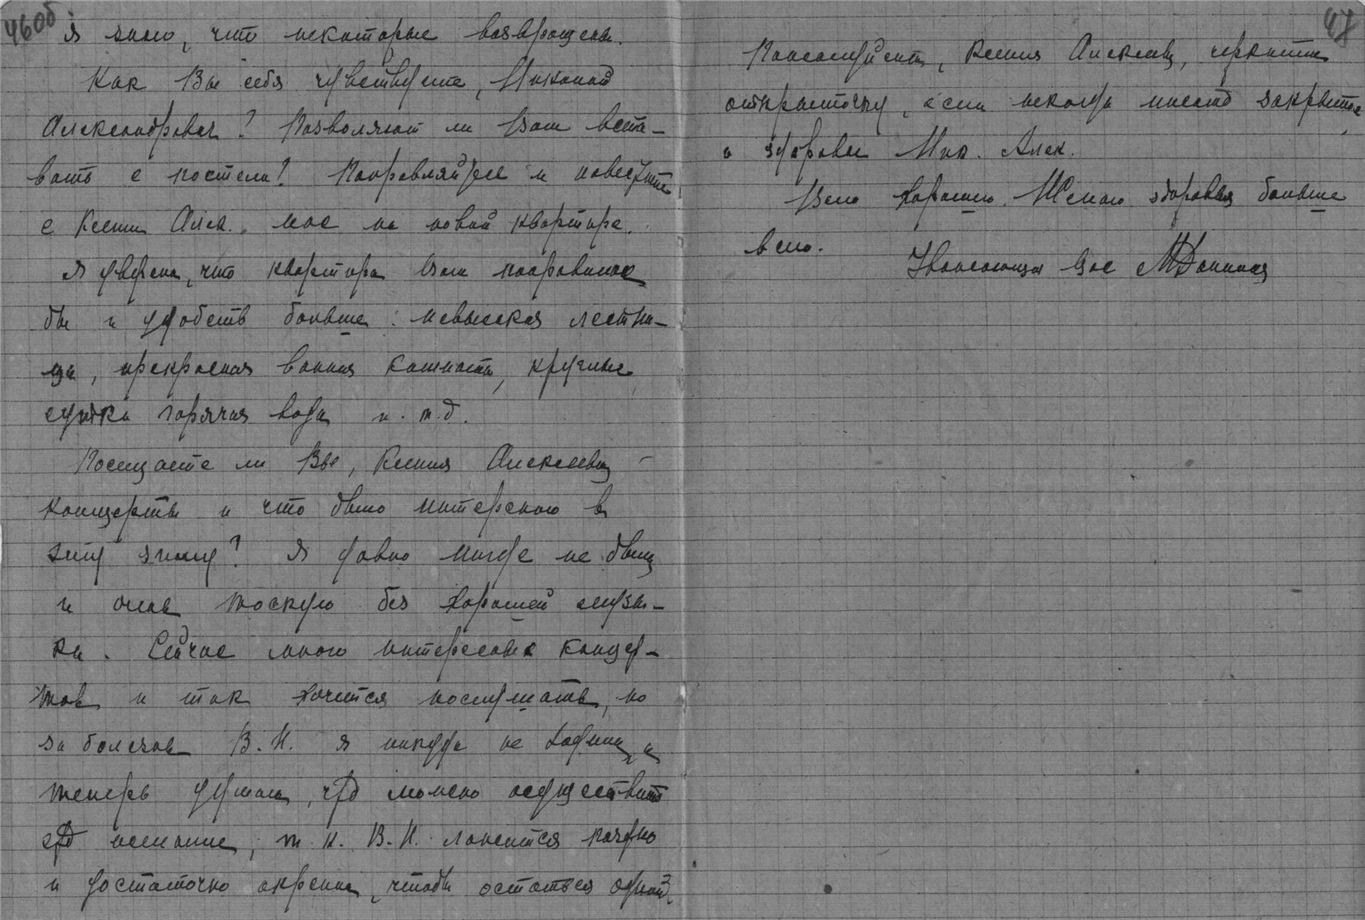 460б
Я знаю, что некоторые возвращены.
Как Вы себя чувствуете, Николай
Александрович? Позволяют ли Вам вста-
вать с постели? Поправляйтесь и навестите
с Ксенией Алек. нас на новой квартире.
Я уверена, что квартира Вам понравилась
бы и удобств больше: невысокая лестни-
ца, прекрасная ванная комната, круглые
сутки горячая вода и т.д.
Посещаете ли Вы, Ксения Алексеевна
концерты и что было интересного в
эту зиму? Я давно нигде не была
и очень тоскую без хорошей музы-
ки. Сейчас много интересных концер-
тов и так хочется послушать, но
за болезнью В.И. я никуда не ходила, а
теперь думаю, что можно осуществить
это желание, т.к. В.И. ложится поздно
и достаточно окрепла, чтобы остаться одной.
47
Пожалуйста, Ксения Алексеевна, черкните
открыточку, если некогда писать закрытое,
о здоровье Ник. Алек.
Всего хорошего. Желаю здоровья больше
всего.
Уважающая Вас